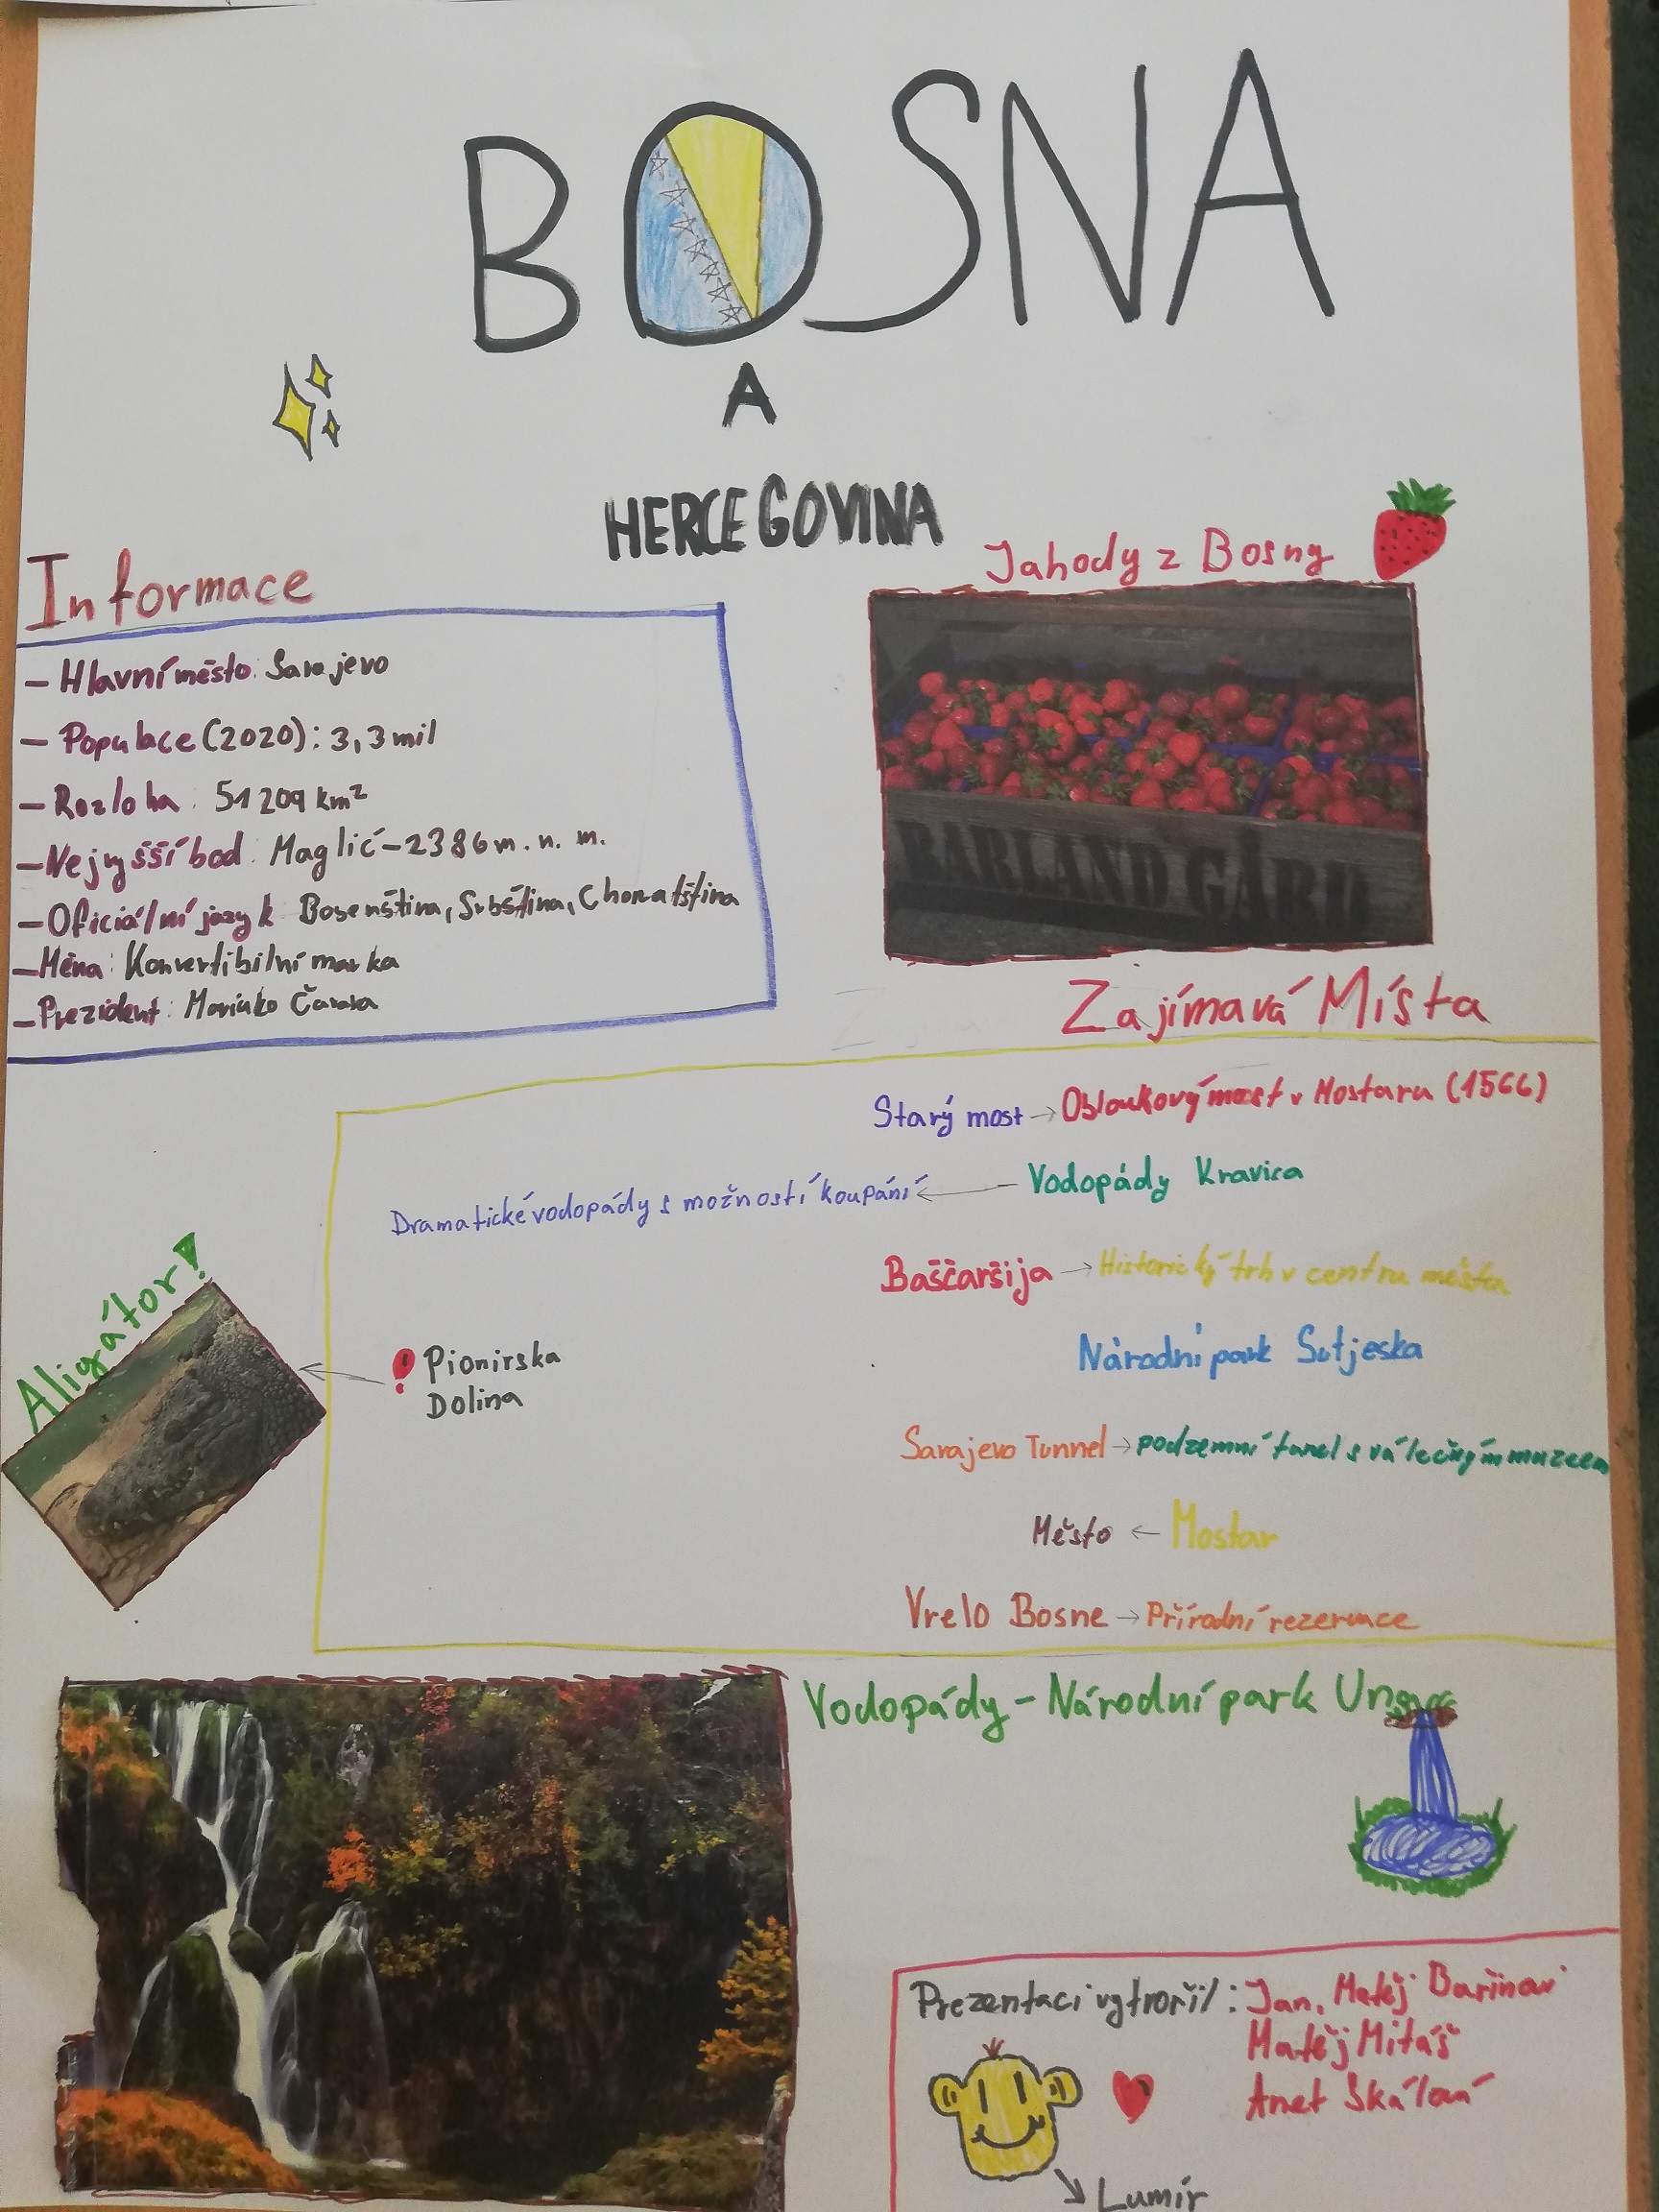 BOSNA
A
HERCEGOVINA
Informace
- Hlavní město: Sarajevo
- Populace (2020): 3,3 mil
- Rozloha: 51 209 km²
- Nejvyšší bod: Maglić - 2386 m. n. m.
- Oficiální jazyk Bosenština, Srbština, Chorvatština
- Měna: Konvertibilní marka
- Prezident:
Jahody z Bosny
BARLAND GÅRD
Zajímavá Místa
Starý most → Obloukový most v Mostaru (1566)
Dramatické vodopády s možností koupání ← Vodopády Kravica
Baščaršija → Historický trh v centru města
Aligátor!
! Pionirska
Dolina
Národní park Sutjeska
Sarajevo Tunnel → podzemní tunel s válečným muzeem
Město ← Mostar
Vrelo Bosne → Přírodní rezervace
Vodopády - Národní park
Prezentaci vytvořil: Jan, Matěj
Matěj Mitáš
Anet
Lumír